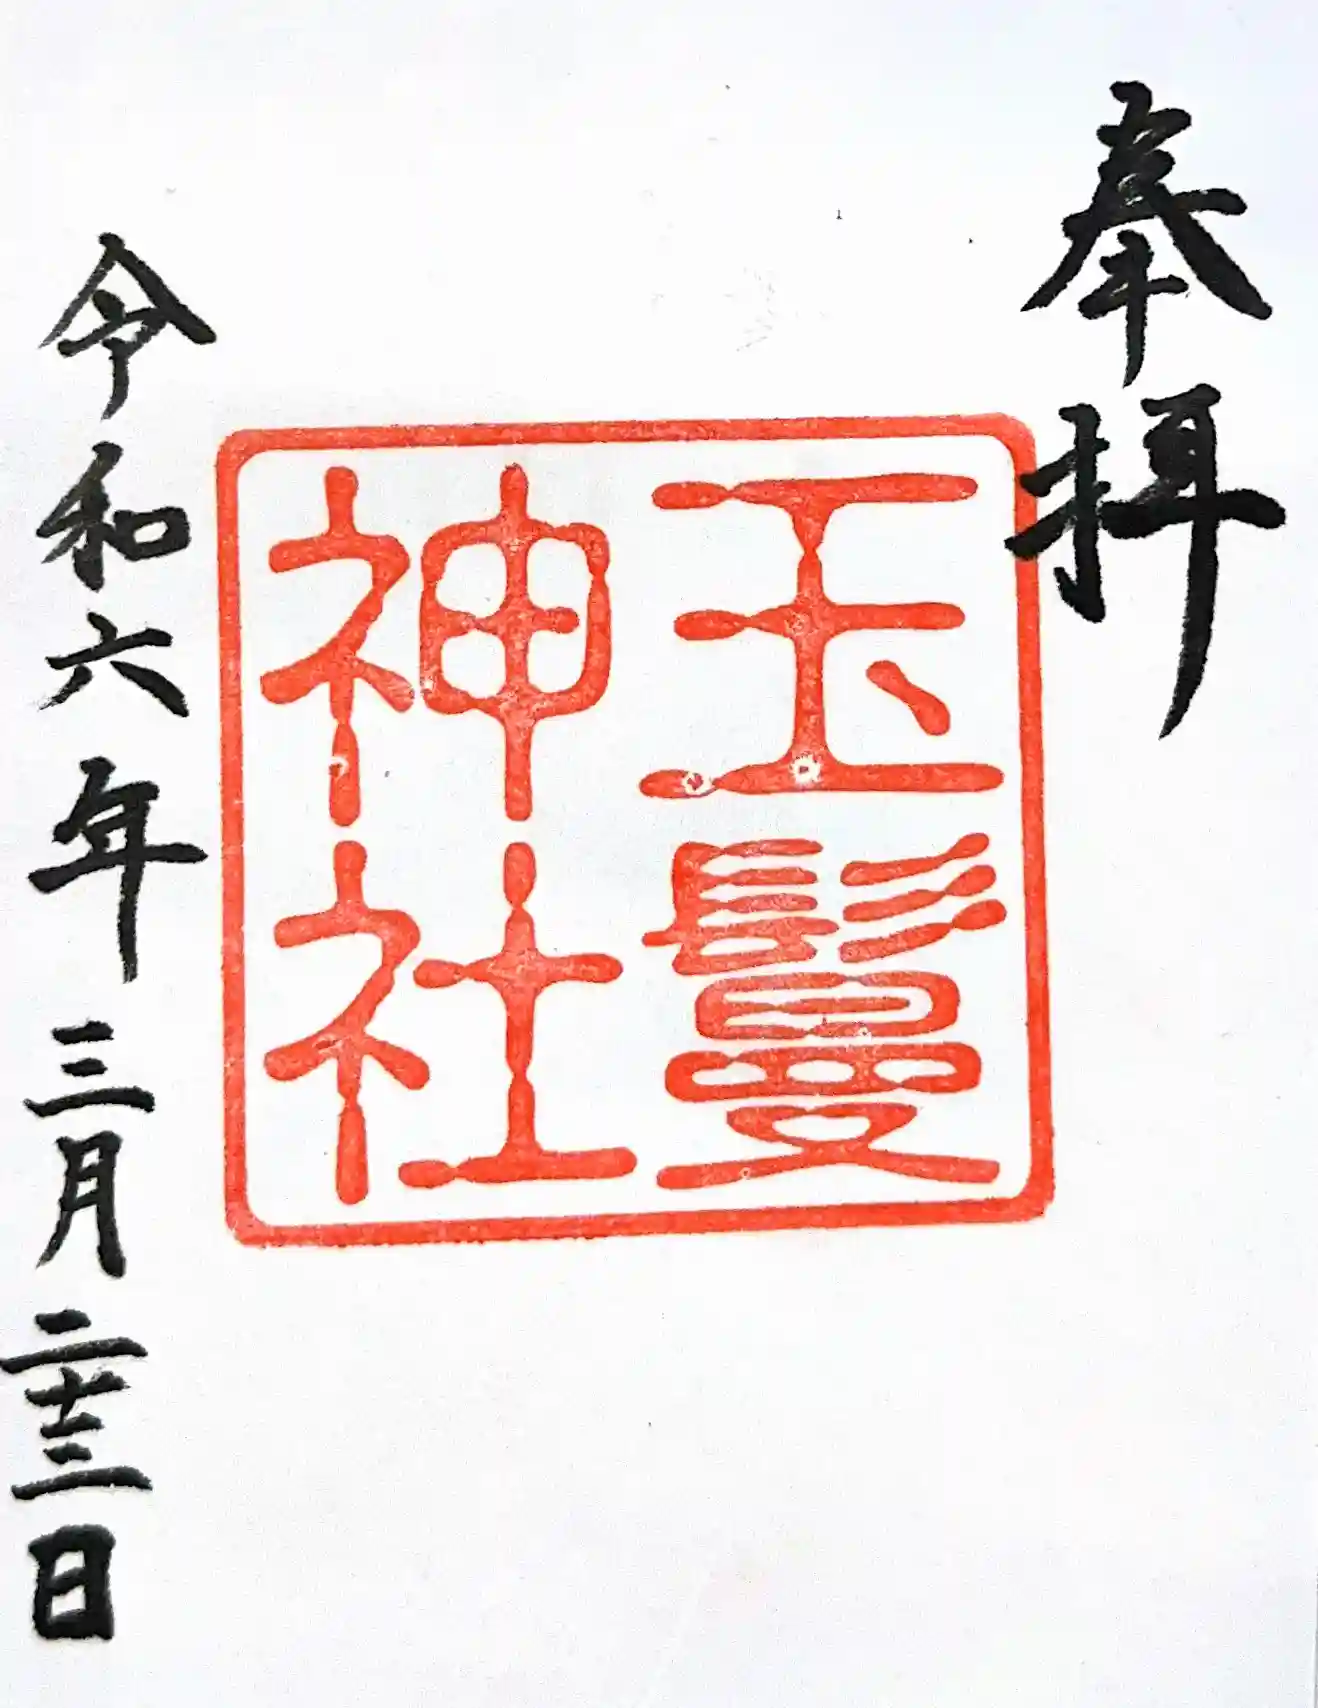 奉拝
玉鬘
神社
令和六年三月二十三日